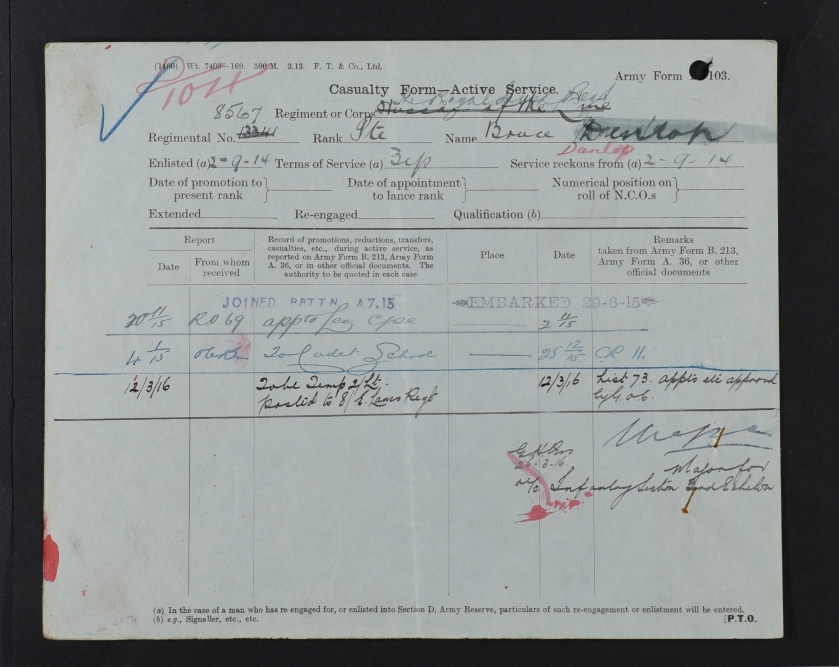 (1460) Wt. 7405—169. 500M. 3.13. F. T. & Co., Ltd.
Army Form 103.
Casualty Form—Active Service.
8567 Regiment or Corps Hussars of the Line
Regimental No. Rank Pte Name Bruce Dunlop
Dunlop
Enlisted (a) 2-9-14 Terms of Service (a) 3yp Service reckons from (a) 2-9-14
Date of promotion to present rank} Date of appointment to lance rank} Numerical position on roll of N.C.Os}
Extended Re-engaged Qualification (b)
Report
Date
From whom received
Record of promotions, reductions, transfers, casualties, etc., during active service, as reported on Army Form B. 213, Army Form A. 36, or in other official documents. The authority to be quoted in each case
Place
Date
Remarks taken from Army Form B. 213, Army Form A. 36, or other official documents
JOINED BETTN 4.7.15 EMBARKED 29-6-15
20 11/15 R.O. 69 appto 2 11/15
4 1/15 To Cadet School 25 12/15 CR 11.
12/3/16 To be Temp 2/Lt. 12/3/16 List 73. appts approved
posted to 8/E. Lancs Regt by G.O.C.
Major for
Infantry Section
(a) In the case of a man who has re-engaged for, or enlisted into Section D, Army Reserve, particulars of such re-engagement or enlistment will be entered.
(b) e.g., Signaller, etc., etc.
[P.T.O.